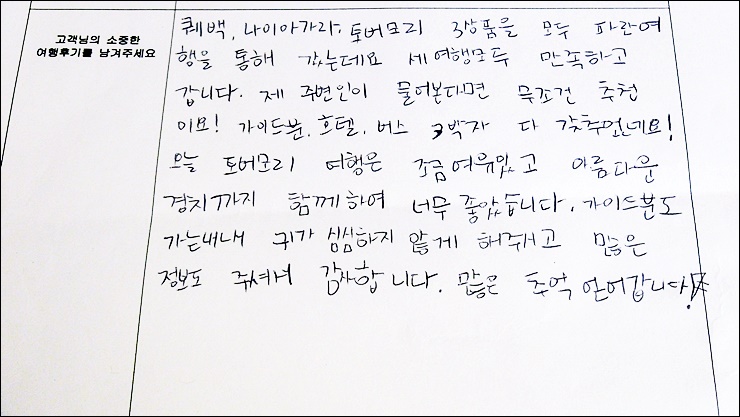 고객님의 소중한
여행후기를 남겨주세요
퀘백, 나이아가라, 토버모리 3상품을 모두 파란여
행을 통해 갔는데요 세여행모두 만족하고
갑니다. 제 주변인이 물어본다면 무조건 추천
이요! 가이드분, 호텔, 버스 3박자 다 갖추었네요!
오늘 토버모리 여행은 조금여유있고 아름다운
경치까지 함께하여 너무 좋았습니다. 가이드분도
가는내내 귀가 심심하지 않게 해주시고 많은
정보도 주셔서 감사합니다. 많은 추억 얻어갑니다!